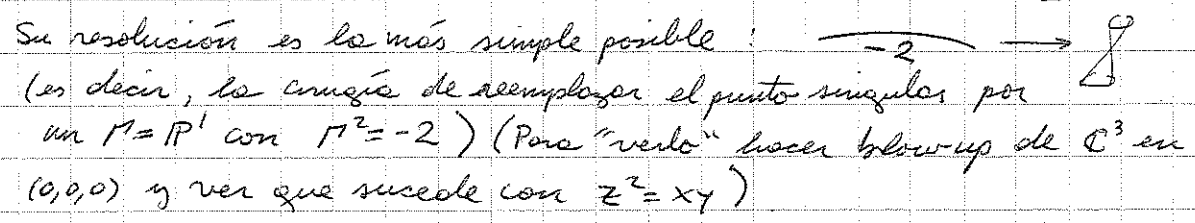 Su resolución es la más simple posible : -2 →
(es decir, la cirugía de reemplazar el punto singular por
un Γ = P¹ con Γ² = -2 ) (Para "verlo" hacer blow-up de ℂ³ en
(0,0,0) y ver que sucede con z² = xy )